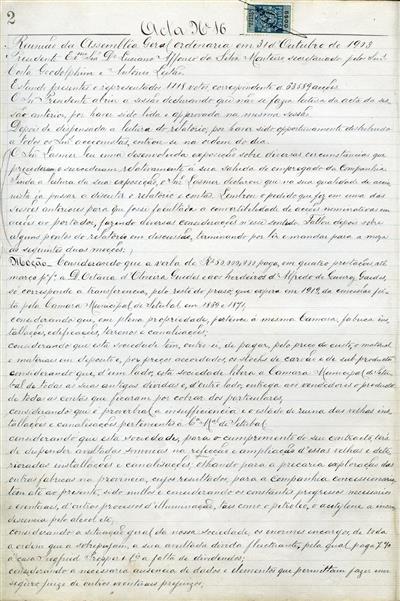 2
Acta Nº 16
Reunião da Assemblêa Geral ordinaria em 31 d'Outubro de 1903
Presidente Exmo Snr. Dr. Luciano Affonso da Silva Monteiro secretariado pelo Snrs.
Costa Goodolphim e Antonio Leitão.
Estando presentes e representados 1118 votos, correspondente a 33559 acções.
O Snr Presidente abriu a sessão declarando que não se fazia leitura da acta da ses-
são anterior, por haver sido lida e approvada na mesma sessão.
Depois de dispensada a leitura do relatorio, por haver sido opportunamente distribuido
a todos os Snrs accionistas, entrou-se na ordem do dia.
O Snr leu uma desenvolvida exposição sobre diversas circumstancias que
precederam e succederam relativamente á sua sahida de empregado da Companhia.
Finda a leitura da sua exposição, o Snr declarou que na sua qualidade de accio-
nista ia passar a discutir o relatorio e contas. Lembrou o pedido que fez em uma das
sessões anteriores para que fosse facultada a convertibilidade de acções nominativas em
acções ao portador, fazendo diversas considerações n'esse sentido. Fallou depois sobre
alguns pontos do relatorio em discussão, terminando por ler e mandar para a meza
as seguintes duas moções:
Moção — Considerando que a verba de Rs em quatro prestações, até
março p.f. a D. Octavio d'Oliveira Guedes e aos herdeiros d'Alfredo de Guedes,
só corresponde á transferencia, pelo resto do praso, que expira em 1919, da concessão fei-
ta pela Camara Municipal de Setubal em 1859 e 1871,
considerando que, em plena propriedade, pertence á mesma Camara, fabrica, ins-
tallações, edificações, terrenos e canalisações;
considerando que esta sociedade tem, entre si, de pagar, pelo preço do custo o material
e materiaes em deposito e, por preços accordados, os stocks de carvão e de sub productos
considerando que, d'um lado, esta sociedade libera a Camara Municipal de Setu-
bal de todas as suas antigas dividas e, d'outro lado, entrega aos vendedores o producto
de todas as contas que ficaram por cobrar dos particulares,
considerando que é proverbial a insufficiencia e o estado de ruina das velhas ins-
tallações e canalisações pertencentes á Cª Mal de Setubal
considerando que esta sociedade, para o cumprimento do seu contracto, terá
de dispender avultadas sommas na refeição e ampliação d'essas velhas e dete-
rioradas installações e canalisações, olhando para a precaria exploração das
outras fabricas na provincia, cujos resultados, para a companhia concessionaria,
tem até ao presente, sido nullos e considerando os constantes progressos necessarios
e eventuaes, d'outros processos d'illuminação, taes como o petroleo, o acetylene a incan-
descencia pelo alcool etc.
considerando a situação geral da nossa sociedade, os enormes encargos de toda
a ordem que a sobrepujam, a sua avultada divida fluctuante, pela qual paga 7 %
á casa e a falta de dividendos;
considerando a necessaria ausencia de dados e elementos que permittam fazer um
seguro juizo de outros eventuaes prejuizos,